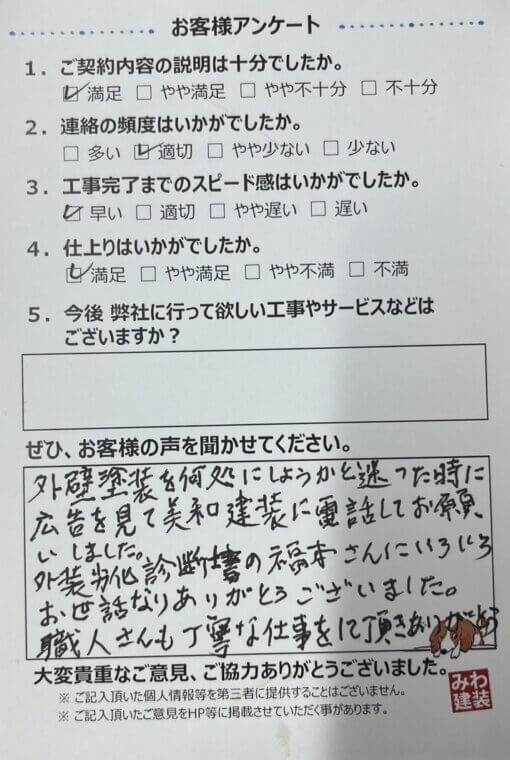 お客様アンケート
1．ご契約内容の説明は十分でしたか。
☑ 満足 □ やや満足 □ やや不十分 □ 不十分
2．連絡の頻度はいかがでしたか。
□ 多い ☑ 適切 □ やや少ない □ 少ない
3．工事完了までのスピード感はいかがでしたか。
☑ 早い □ 適切 □ やや遅い □ 遅い
4．仕上りはいかがでしたか。
☑ 満足 □ やや満足 □ やや不満 □ 不満
5．今後 弊社に行って欲しい工事やサービスなどは
ございますか？
ぜひ、お客様の声を聞かせてください。
外壁塗装を何処にしようかと迷った時に
広告を見て美和建装に電話してお願
いしました。
外装劣化診断書の福本さんにいろいろ
お世話なりありがとうございました。
職人さんも丁寧な仕事をして頂きありがとう
大変貴重なご意見、ご協力ありがとうございました。
※ ご記入頂いた個人情報等を第三者に提供することはございません。
※ ご記入頂いたご意見をHP等に掲載させていただく事があります。
みわ
建装